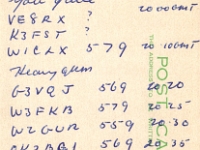 2000GMT
VE8RX ?
K3FST ?
W1CLX 579 20 10GMT
Heavy QRM
G3VQJ 569 20.20
W3FKB 579 20.25
W2GUR 559 20.30
569 20.35
POST CA
THE ADDRESS TO